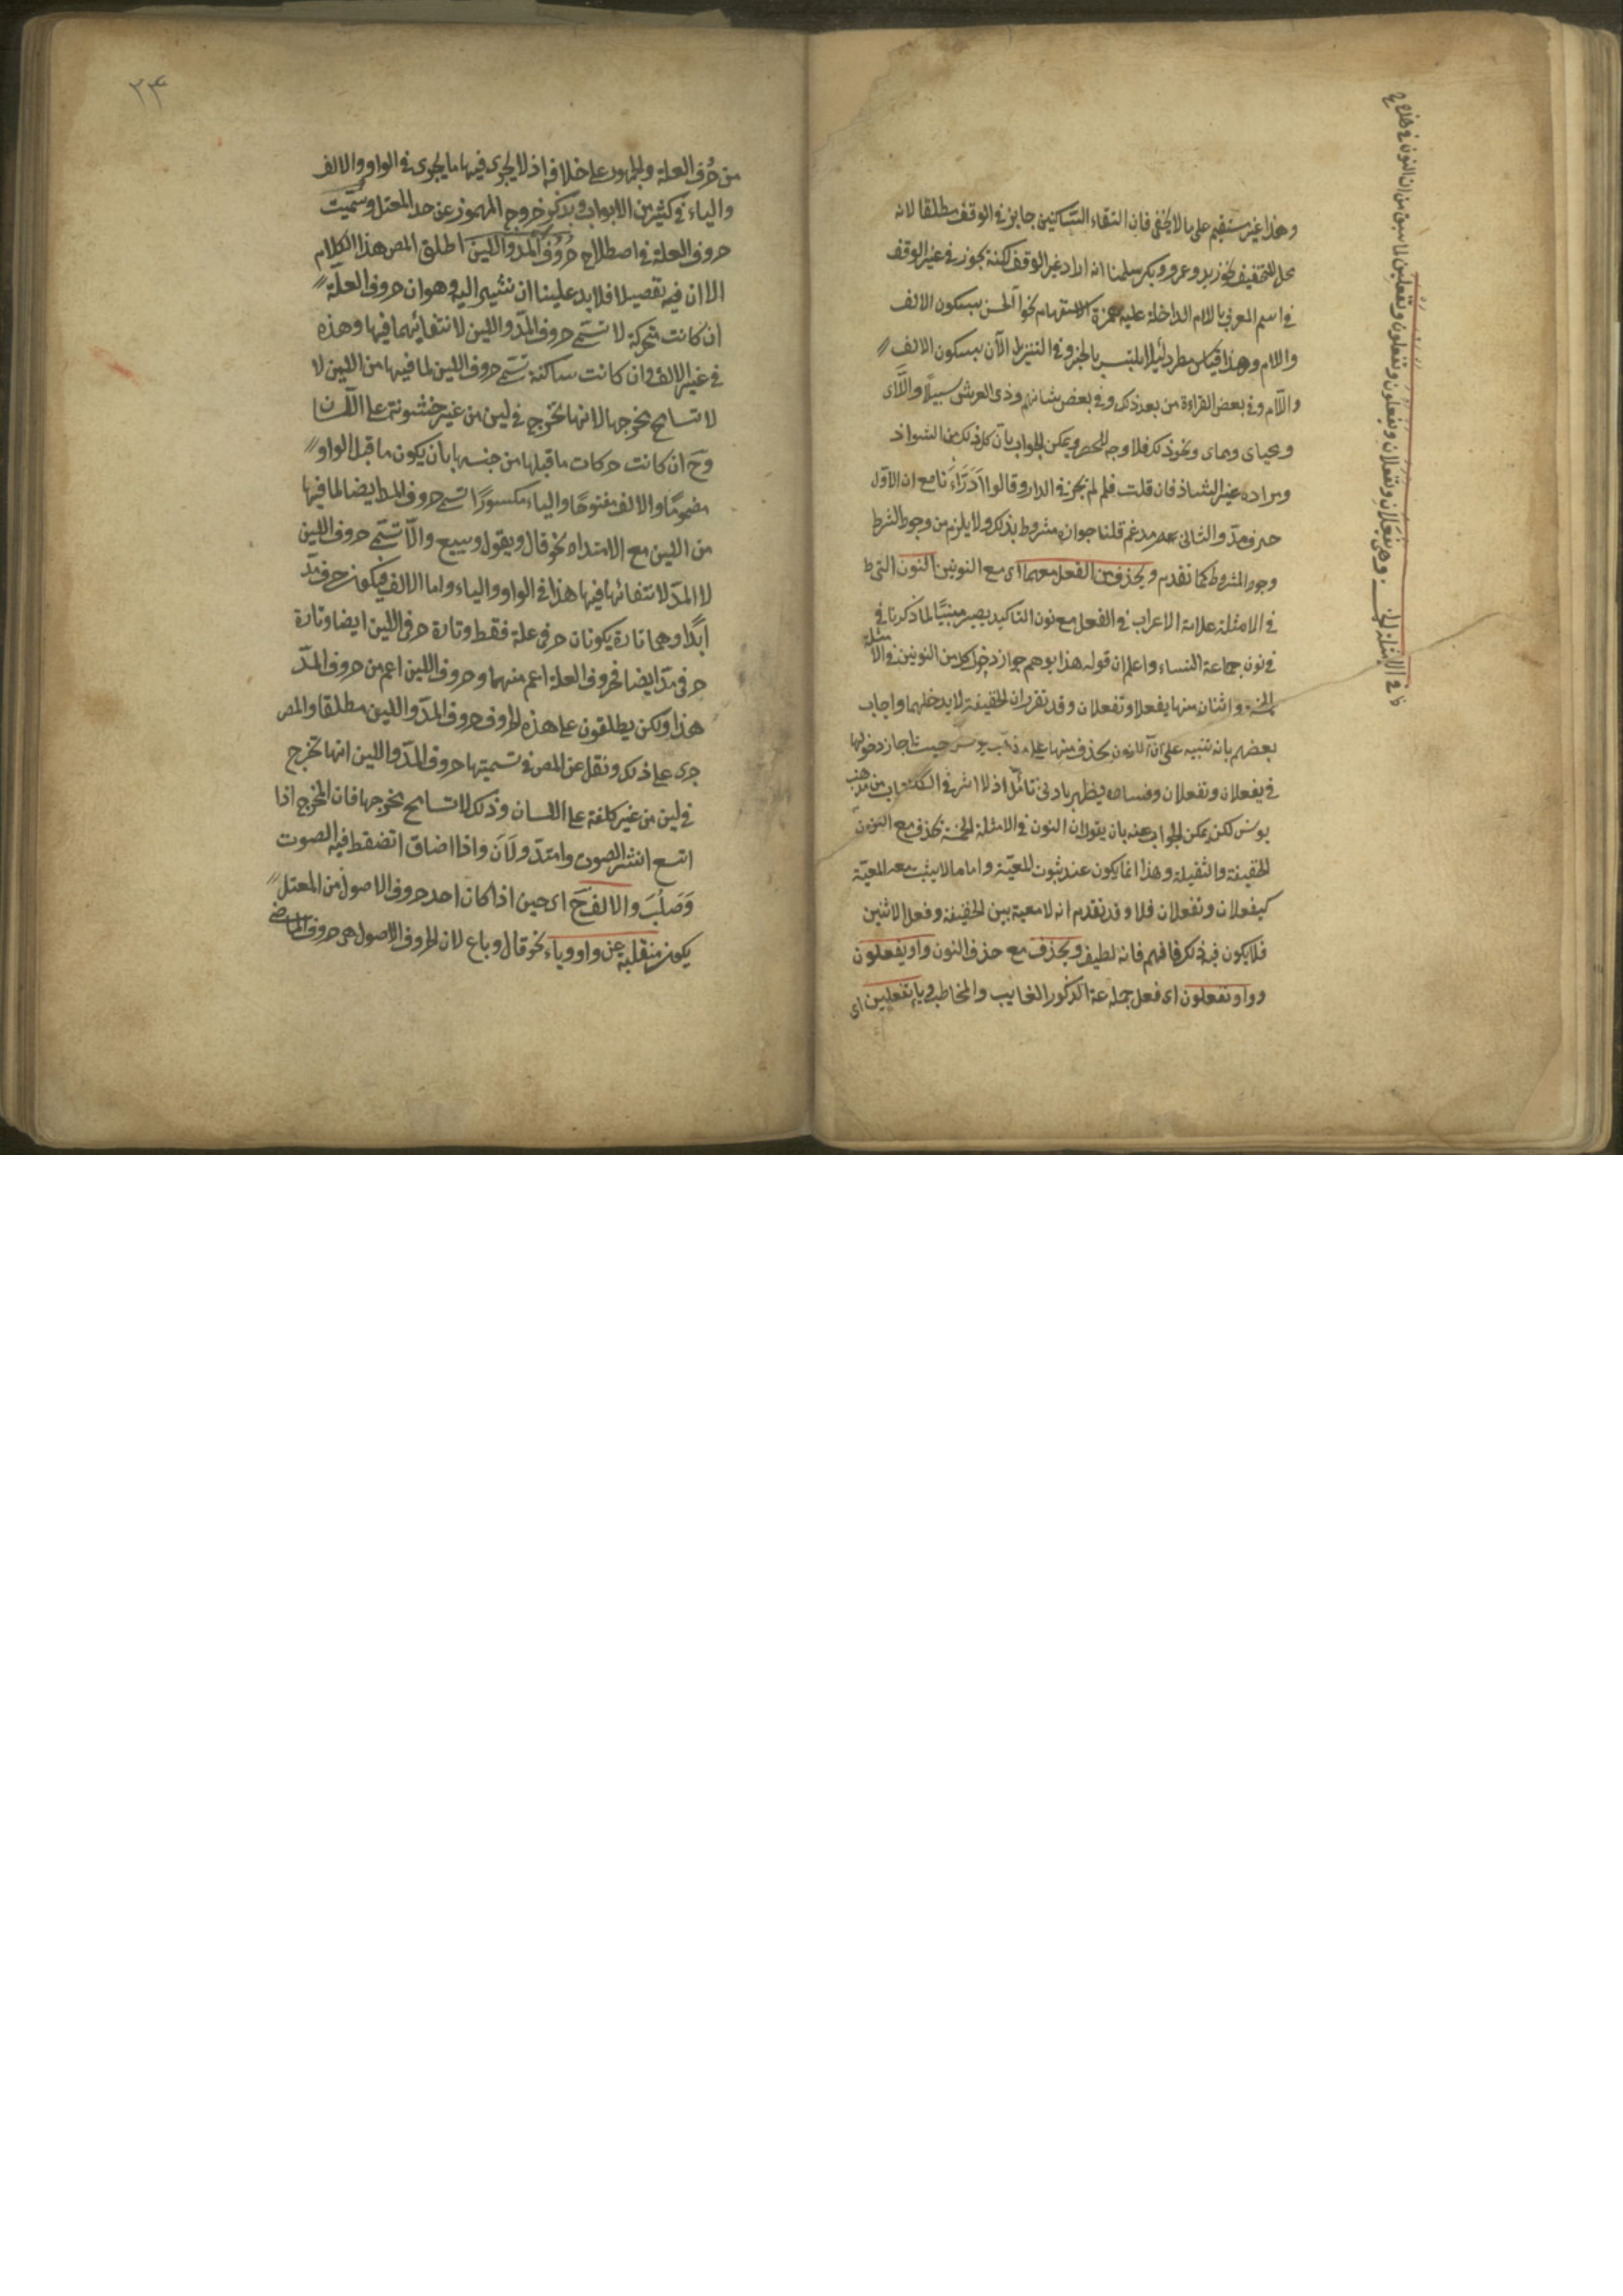 وهذا غير مستقيم على ما لا يخفى فان التقاء الساكنين جايز في الوقف مطلقا لانه
محل للتخفيف نحو زيد وعمرو وبكر سلمنا انه اراد غير الوقف لكنه يجوز في غير الوقف
في اسم المعرف باللام الداخلة عليه همزة الاستفهام نحو آلحسن بسكون الالف
واللام وهذا قياس مطرد لئلا يلتبس بالخبر وفي التنزيل الآن بسكون الالف
واللام وفي بعض القراءة من بعد ذلك وفي بعض شانهم وذي العرش سبيلا واللاى
ومحياى ومماى ونحو ذلك فلا وجه للحصر ويمكن الجواب بان كل ذلك من الشواذ
ومراده غير الشاذ فان قلت فلم لم يجز في الدار وقالوا ادّراءنا مع ان الاول
حرف مدّ والثانى مدغم قلنا جوازه مشروط بذلك ولا يلزم من وجود الشرط
وجود المشروط كما تقدم ويحذف من الفعل معهما اى مع النونين النون التى
في الامثلة علامة الاعراب في الفعل مع نون التاكيد يصير مبنيًّا لما ذكرنا في
في نون جماعة النساء واعلم ان قوله هذا يوهم جواز دخول كل من النونين في الامثلة
الخمسة واثنان منها يفعلان وتفعلان وقد تقرر ان الخفيفة لا يدخلهما واجاب
بعضهم بانه تنبيه على ان النون يحذف منها على مذهب يونس حيث اجاز دخولها
في يفعلان وتفعلان وفساده يظهر بادنى تأمّل اذ لا اثر في الكتاب من مذهب
يونس لكن يمكن الجواب عنه بان يقول ان النون في الامثلة الخمسة تحذف مع النون
الخفيفة والثقيلة وهذا انما يكون عند ثبوت المعيّة واما ما لا يثبت معه المعيّة
كيفعلان وتفعلان فلا وقد تقدم انه لا معية بين الخفيفة وفعل الاثنين
فلا يكون فيه ذلك فافهم فانه لطيف ويحذف مع حذف النون واو يفعلون
وواو تفعلون اى فعل جماعة الذكور الغايب والمخاطب وياء تفعلين اى
في الامثلة الخمسة وهى يفعلان وتفعلان ويفعلون وتفعلون وتفعلين لما سبق من ان النون في هذه
٢٣٤
من حرف العلة والجمهور على خلافه اذ لا يجرى فيها ما يجرى في الواو والالف
والياء في كثير من الابواب وبذكر خروج المهموز عن حد المعتل وسميت
حروف العلة في اصطلاح حروف المدّ واللين اطلق المص هذا الكلام
الا ان فيه تفصيلا فلا بد علينا ان نشير اليه وهو ان حروف العلّة
ان كانت متحركة لا تسمّى حروف المدّ واللين لانتفائهما فيها وهذه
في غير الالف وان كانت ساكنة تسمى حروف اللين لما فيها من اللين لا
لاتساع مخرجها لانها تخرج في لين من غير خشونة على اللسان
وح ان كانت حركات ما قبلها من جنسها بان يكون ما قبل الواو
مضمومًا والالف مفتوحًا والياء مكسورًا تسمى حروف المد ايضا لما فيها
من اللين مع الامتداد نحو قال ويقول ويبيع والّا تسمّى حروف اللين
لا المدّ لانتفائها فيها هذا في الواو والياء واما الالف فيكون حرف مدّ
ابدًا وهما تارة يكونان حرفى علة فقط وتارة حرفى اللين ايضا وتارة
حرفى مدّ ايضا فحروف العلة اعم منهما وحروف اللين اعم من حروف المدّ
هذا ولكن يطلقون على هذه الحروف حروف المدّ واللين مطلقا والمص
جرى على ذلك ونقل عن المص في تسميتها حروف المدّ واللين انها تخرج
في لين من غير كلفة على اللسان وذلك لاتساع مخرجها فان المخرج اذا
اتسع انتشر الصوت وامتدّ ولَانَ واذا ضاق انضغط فيه الصوت
وَصَلُبَ والالف ح اى حين اذا كان احد حروف الاصول من المعتل
يكون منقلبة عن واو وياء نحو قال وباع لان الحروف الاصول هى حروف الماضى